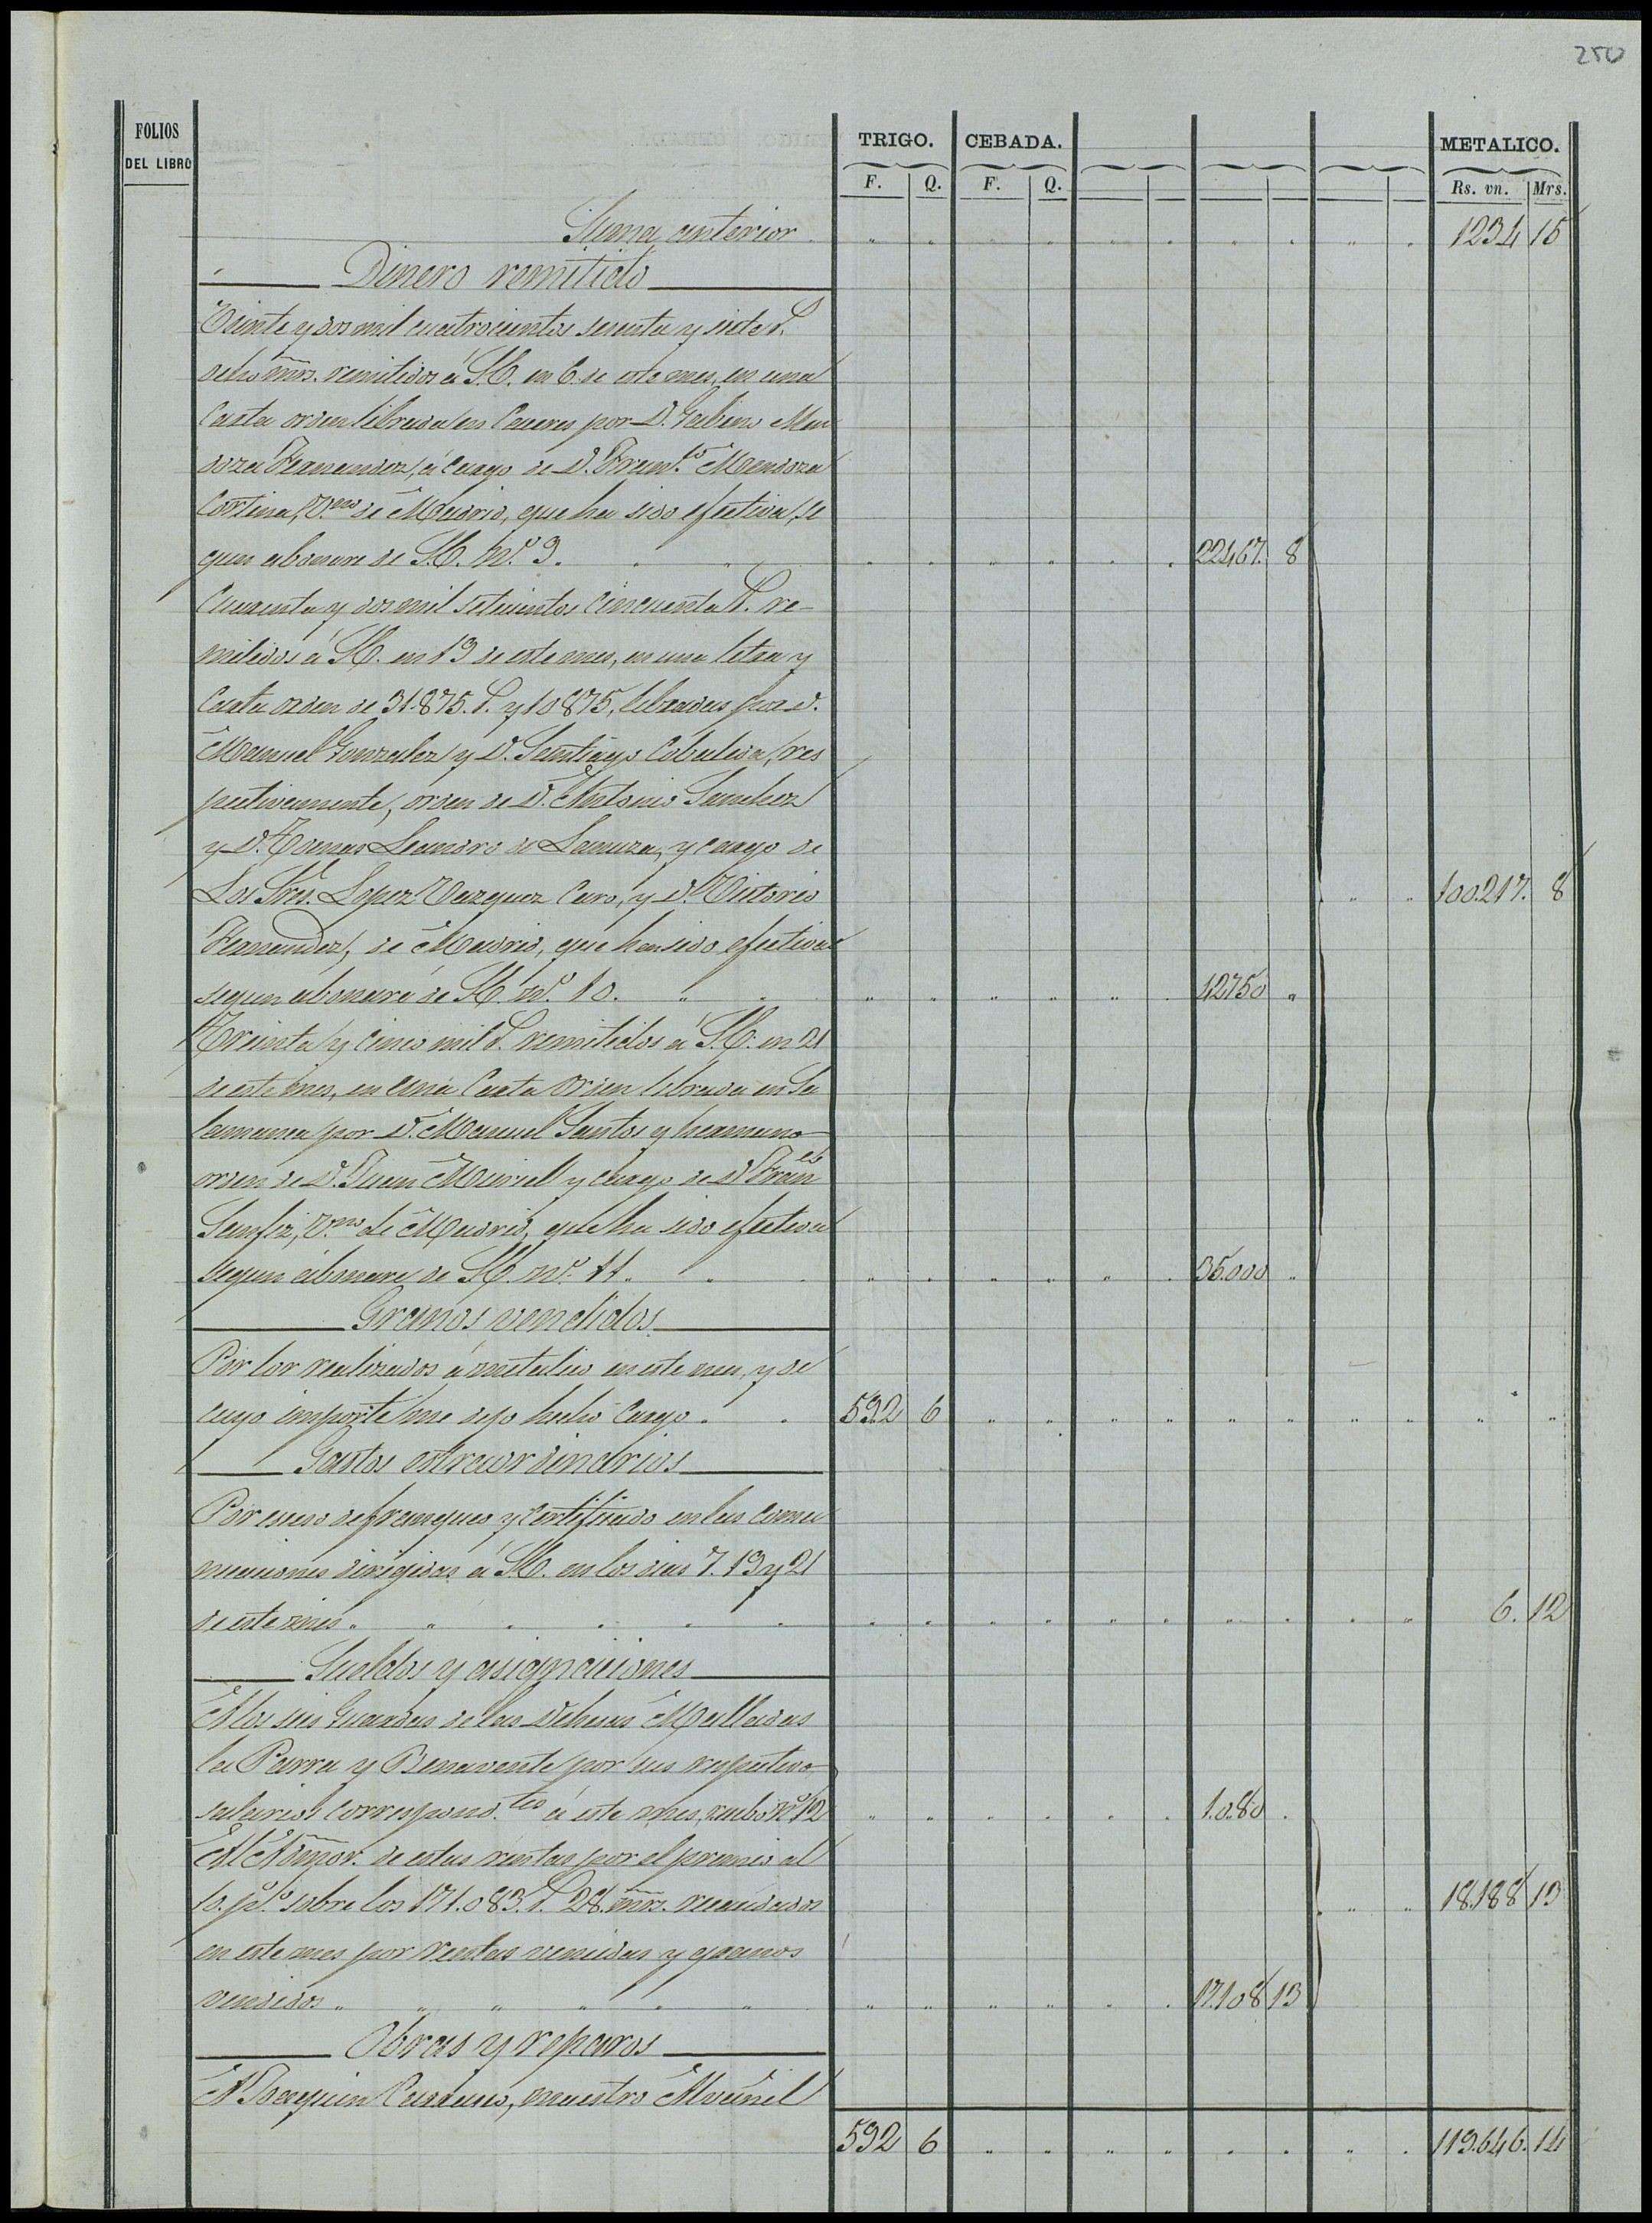 250
FOLIOS DEL LIBRO
TRIGO. CEBADA. METALICO.
F. Q. F. Q. Rs. vn. Mrs.
Suma anterior 1234 15
Dinero remitido
Veinte y dos mil cuatrocientos sesenta y siete r.
ocho mrs. remitidos á S.E. en 6 de este mes, en una
Carta orden librada en Caceres por D. Gabino Men
doza Fernandez, á cargo de D. Mendoza
Cortina, V.no de Madrid, que ha sido efectiva, se
gun abonare de S.E. n.o 9. 22467. 8
Cuarenta y dos mil setecientos cincuenta r. re-
mitidos á S.E. en 13 de este mes, en una letra y
Carta orden de 31.875. r. y 10875, libradas por D.
Manuel Gonzalez y D. Santiago Cobaleda, res
pectivamente, orden de D. Antonio Sanchez
y D. Tomas Leandro de Lanuza, y cargo de
Los Sres. Lopez Vazquez Caro, y D. Victorio 100.217. 8
Fernandez, de Madrid, que han sido efectivas
segun abonaré de S.E. n.o 10. 42750 "
Treinta y cinco mil r. remitidos á S.E. en 21
de este mes, en una Carta orden librada en Sa
lamanca por D. Manuel Santos y hermano
orden de D. Juan Muriell y cargo de D. Fran.co
V.no de Madrid, que ha sido efectiva
segun abonare de S.E. n.o 11. 35.000 "
Granos vendidos
Por los realizados á metalico en este mes, y de
cuyo importe me dejo hecho Cargo. 592 6
Gastos estraordinarios
Por esceso de franqueo y Certificado en las comu
nicaciones dirigidas á S.E. en los dias 7. 13 y 21
de este mes 6. 12
Sueldos y asignaciones
A los seis Guardas de las Dehesas Malladas
la Parra y Benavente por sus respectivos
salarios correspond.tes á este mes, recibo n.o 12 1.080 "
Al Admor. de estas rentas por el premio al
10. p.o% sobre los 171.083. r. 28. mrs. recaudados 18.188 13
en este mes por rentas vencidas y granos
vendidos 17.108 13
Obras y reparos
A Joaquin maestro Alvañil
592 6 119.646. 14